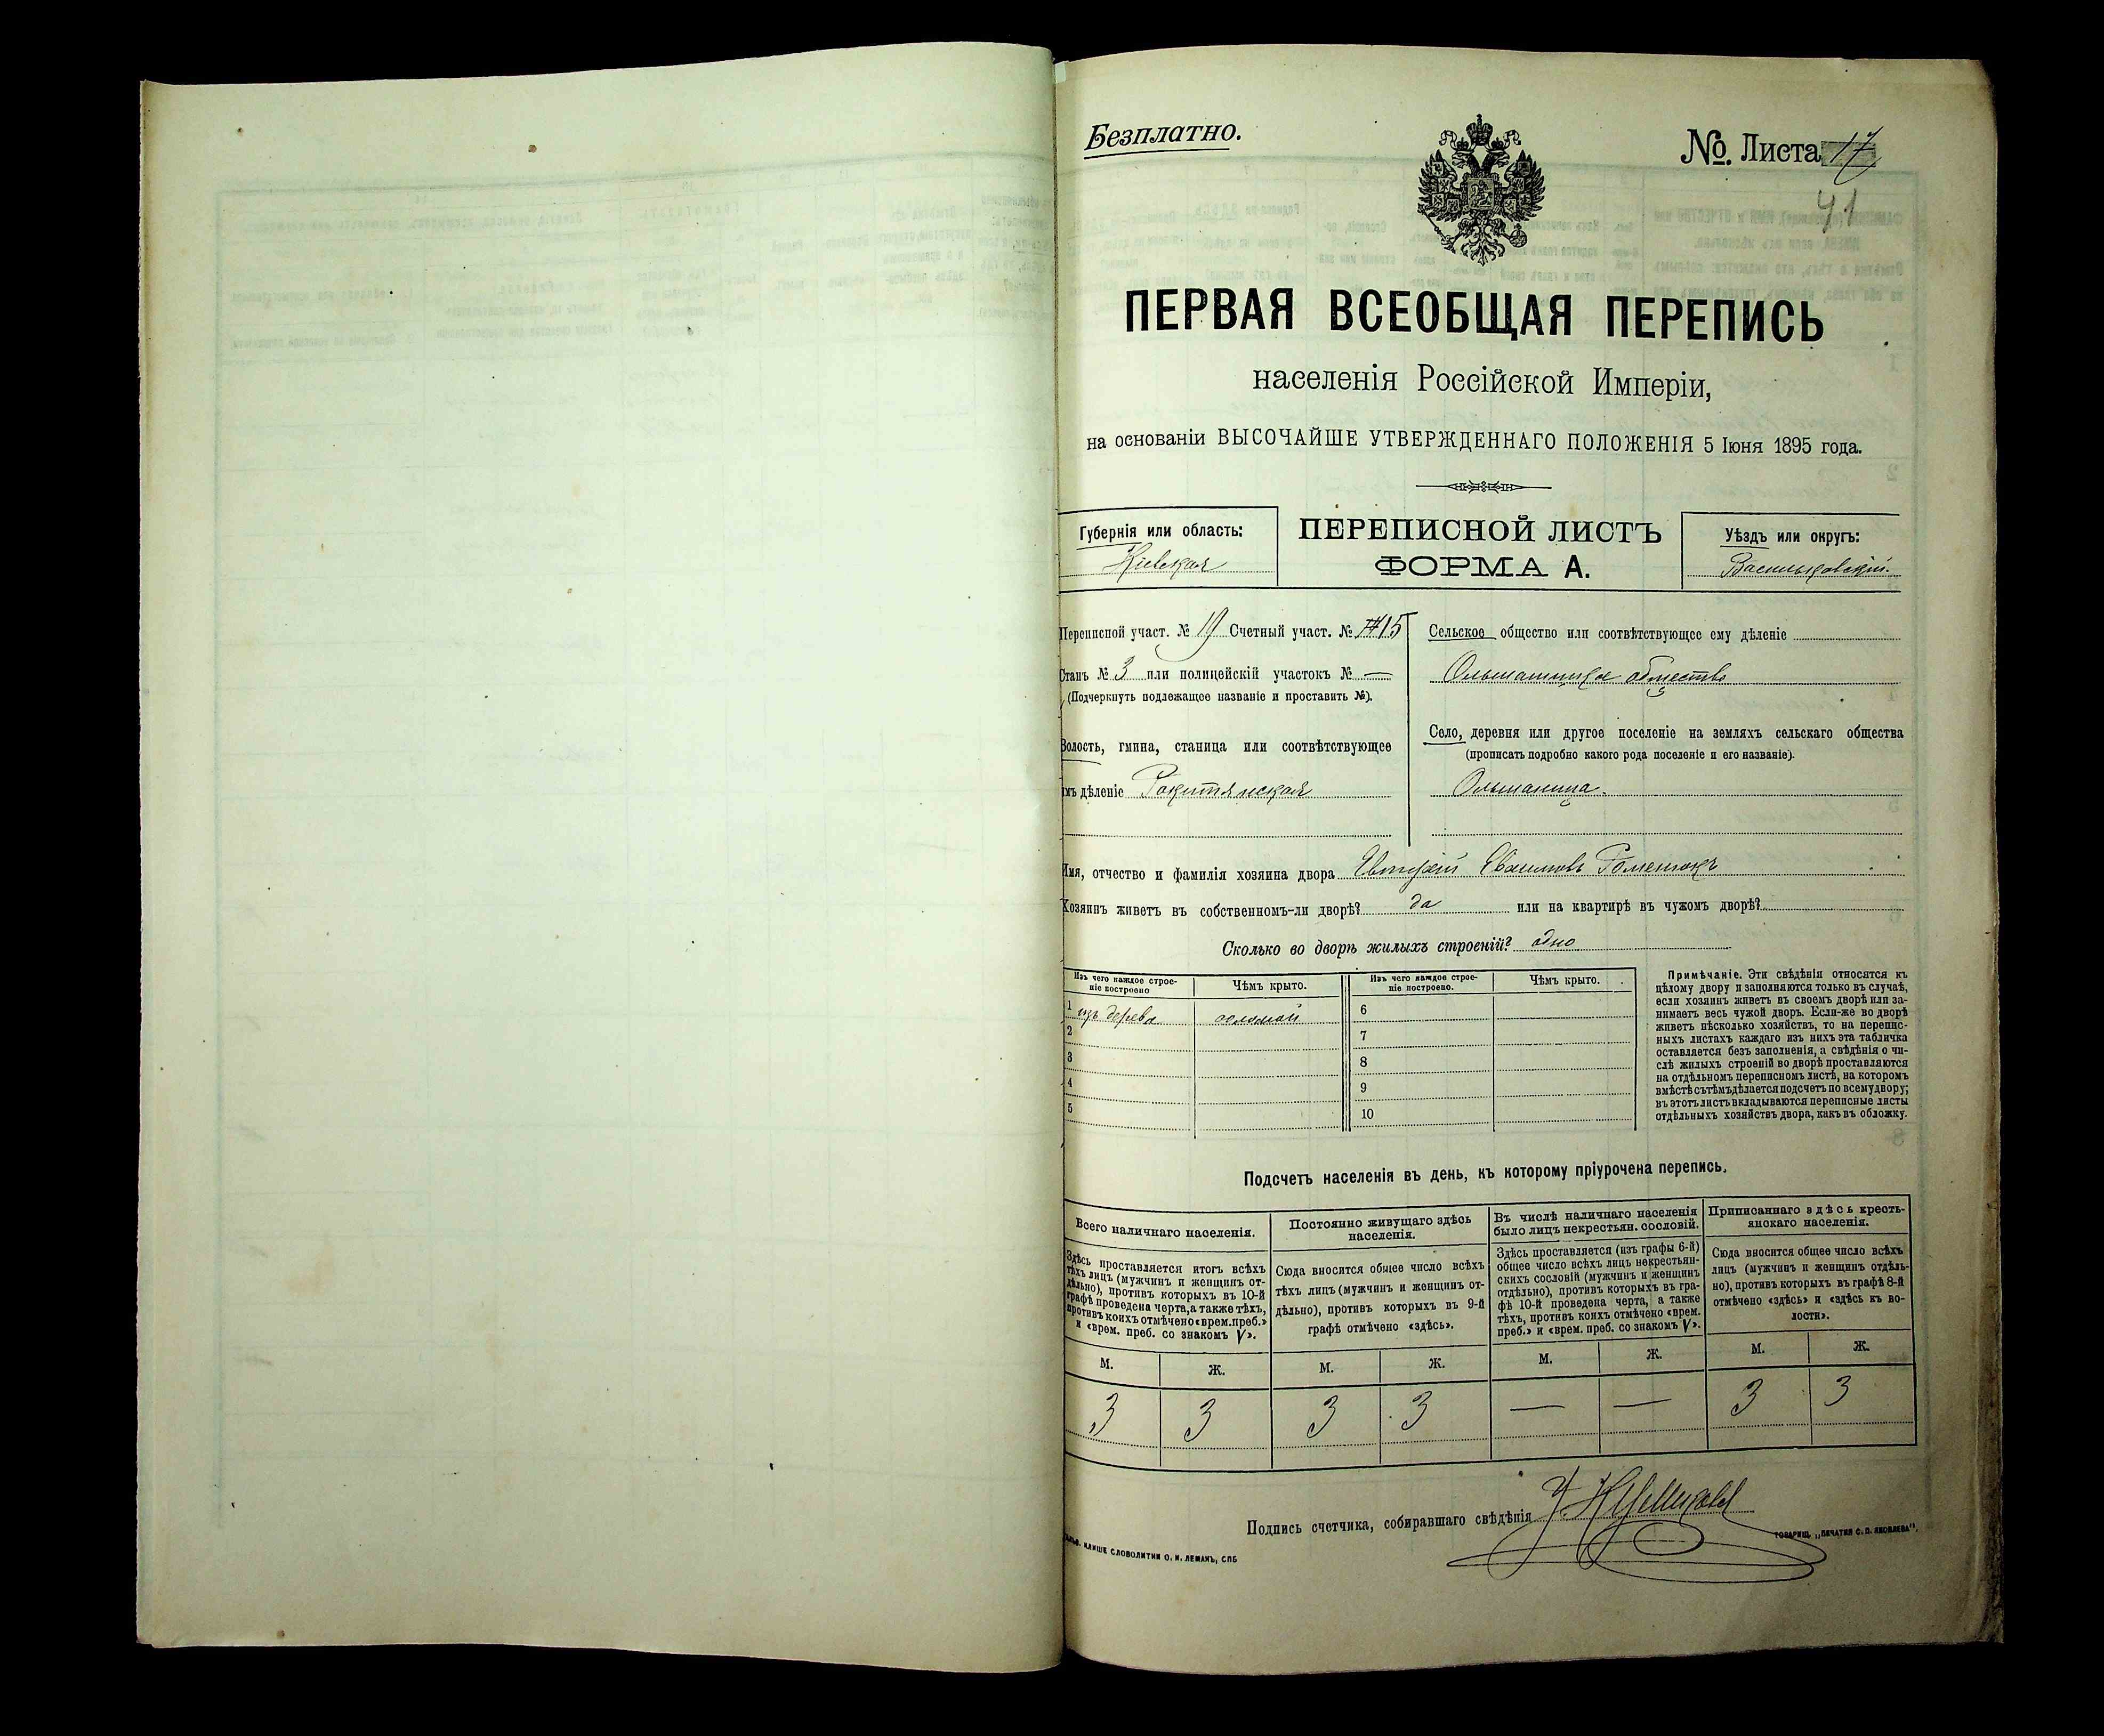 Безплатно.
№. Листа 17
41
ПЕРВАЯ ВСЕОБЩАЯ ПЕРЕПИСЬ
населенія Россійской Имперіи,
на основаніи ВЫСОЧАЙШЕ УТВЕРЖДЕННАГО ПОЛОЖЕНІЯ 5 Іюня 1895 года.
Губернія или область:
Кіевская
ПЕРЕПИСНОЙ ЛИСТЪ
ФОРМА А.
Уѣздъ или округъ:
Васильковскій.
Переписной участ. № 19 Счетный участ. № 15
Станъ № 3 или полицейскій участокъ № —
(Подчеркнуть подлежащее названіе и проставить №).
Волость, гмина, станица или соотвѣтствующее
имъ дѣленіе Рокитянская
Сельское общество или соотвѣтствующее ему дѣленіе
Ольшаницкое общество
Село, деревня или другое поселеніе на земляхъ сельскаго общества
(прописать подробно какого рода поселеніе и его названіе).
Ольшаница.
Имя, отчество и фамилія хозяина двора
Хозяинъ живетъ въ собственномъ-ли дворѣ? да или на квартирѣ въ чужомъ дворѣ?
Сколько во дворѣ жилыхъ строеній? одно
Изъ чего каждое строе-
ніе построено
Чѣмъ крыто.
Изъ чего каждое строе-
ніе построено.
Чѣмъ крыто.
1 изъ дерева соломой
2
3
4
5
6
7
8
9
10
Примѣчаніе. Эти свѣдѣнія относятся къ
цѣлому двору и заполняются только въ случаѣ,
если хозяинъ живетъ въ своемъ дворѣ или за-
нимаетъ весь чужой дворъ. Если-же во дворѣ
живетъ нѣсколько хозяйствъ, то на перепис-
ныхъ листахъ каждаго изъ нихъ эта табличка
оставляется безъ заполненія, а свѣдѣнія о чи-
слѣ жилыхъ строеній во дворѣ проставляются
на отдѣльномъ переписномъ листѣ, на которомъ
вмѣстѣ съ тѣмъ дѣлается подсчетъ по всему двору;
въ этотъ листъ вкладываются переписные листы
отдѣльныхъ хозяйствъ двора, какъ въ обложку.
Подсчетъ населенія въ день, къ которому пріурочена перепись.
Всего наличнаго населенія.
Здѣсь проставляется итогъ всѣхъ
тѣхъ лицъ (мужчинъ и женщинъ от-
дѣльно), противъ которыхъ въ 10-й
графѣ проведена черта, а также тѣхъ,
противъ коихъ отмѣчено «врем. преб.»
и «врем. преб. со знакомъ V».
М. Ж.
3 3
Постоянно живущаго здѣсь
населенія.
Сюда вносится общее число всѣхъ
тѣхъ лицъ (мужчинъ и женщинъ от-
дѣльно), противъ которыхъ въ 9-й
графѣ отмѣчено «здѣсь».
М. Ж.
3 3
Въ числѣ наличнаго населенія
было лицъ некрестьян. сословій.
Здѣсь проставляется (изъ графы 6-й)
общее число всѣхъ лицъ некрестьян-
скихъ сословій (мужчинъ и женщинъ
отдѣльно), противъ которыхъ въ гра-
фѣ 10-й проведена черта, а также
тѣхъ, противъ коихъ отмѣчено «врем.
преб.» и «врем. преб. со знакомъ V».
М. Ж.
— —
Приписаннаго здѣсь кресть-
янскаго населенія.
Сюда вносится общее число всѣхъ
лицъ (мужчинъ и женщинъ отдѣль-
но), противъ которыхъ въ графѣ 8-й
отмѣчено «здѣсь» и «здѣсь къ во-
лости».
М. Ж.
3 3
Подпись счетчика, собиравшаго свѣдѣнія
КЛИШЕ СЛОВОЛИТНИ О. И. ЛЕМАНЪ, СПБ
ТОВАРИЩ. „ПЕЧАТНЯ С. П. ЯКОВЛЕВА".